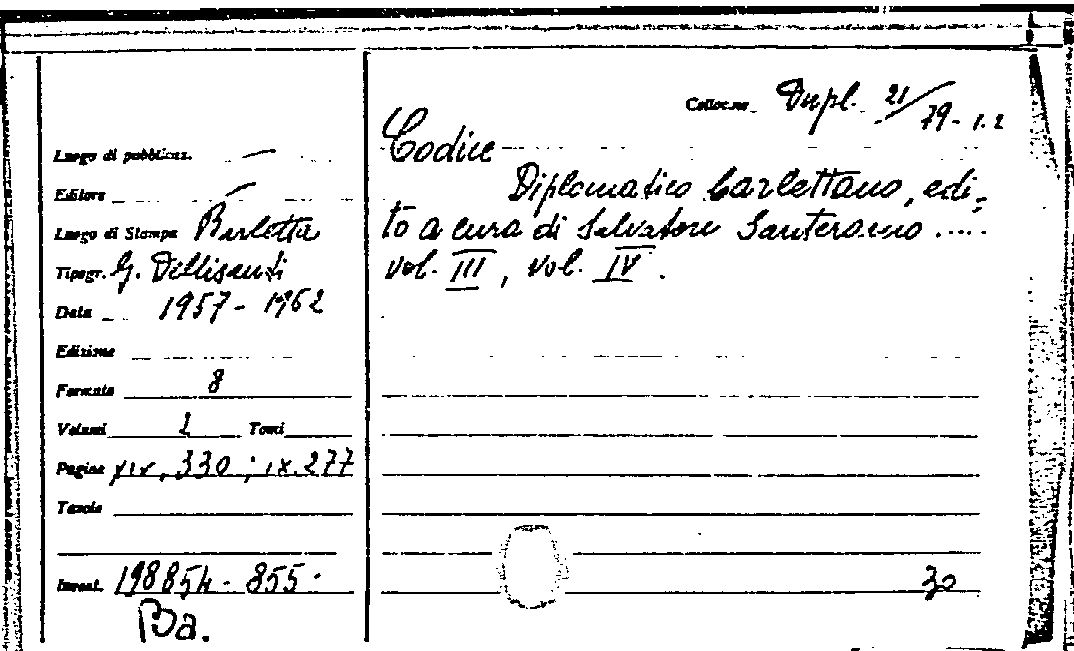 Colloc.ne Dupl. 21/79-1.2
Codice
Diplomatico barlettano, edi-
to a cura di Salvatore Santeramo .....
vol. III, vol. IV.
Luogo di pubblicaz. —
Editore —
Luogo di Stampa Barletta
Tipogr. G. Dellisanti
Data 1957-1962
Edizione
Formato 8
Volumi 2 Tomi
Pagine XIX, 330; IX.277
Tavole
Invent. 198854-855.
Ba.
30